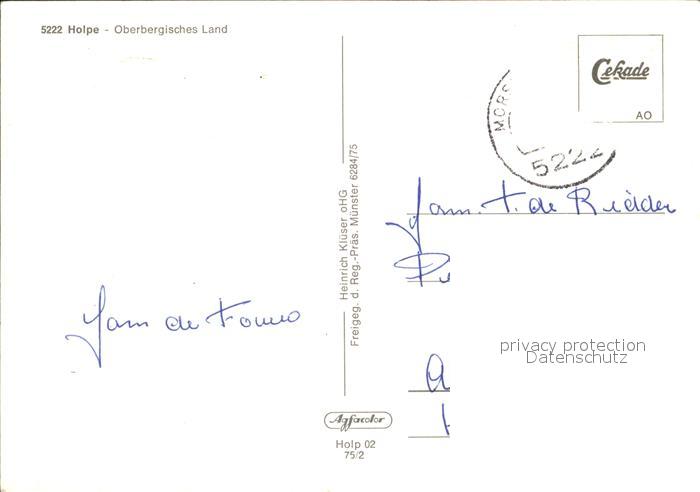 5222 Holpe - Oberbergisches Land
Cekade
AO
MORS
5222
Heinrich Klüser oHG
Freigeg. d. Reg.-Präs. Münster 6284/75
Fam. T. de Ridder
privacy protection
Datenschutz
Fam de
Agfacolor
Holp 02
75/2